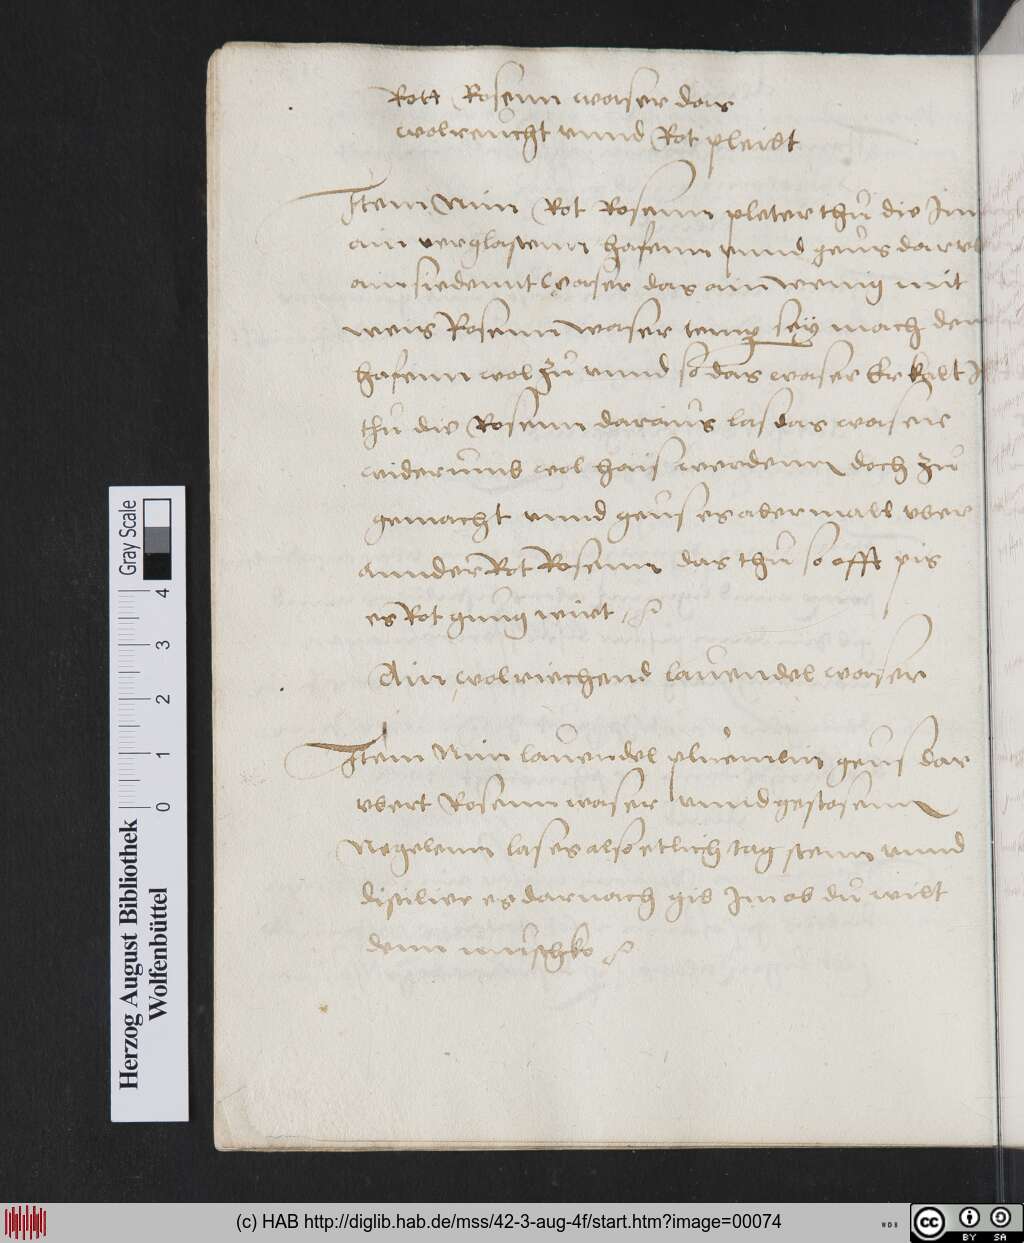 Rott Rosenn waser das
wolreucht vnnd Rot pleibt
Item Nim Rot Rosenn pleter thů die Im
ain verglastenn hafenn vnnd geus dar
ain siedennt waser das ain wenig mit
weis Rosenn waser temp sey mach den
hafenn wol zů vnnd so das waser Erkalt
thů die Rosenn daraus las das waser
widerumb wol hais werdenn doch zů
gemacht vnnd geus es abermall vber
annder Rot Rosenn das thů so offt pis
es Rot gnůg wirt
Ain wolriechend lauendel waser
Item Nim lauendel pluemlin geus dar
vber Rosennwaser vnnd gestosenn
Negelenn las es also etlich tag stenn vnnd
distilier es darnach gib Im ob du wilt
denn muschko
Gray Scale
4
3
2
1
0
Herzog August Bibliothek
Wolfenbüttel
(c) HAB http://diglib.hab.de/mss/42-3-aug-4f/start.htm?image=00074
WDB
cc
BY SA